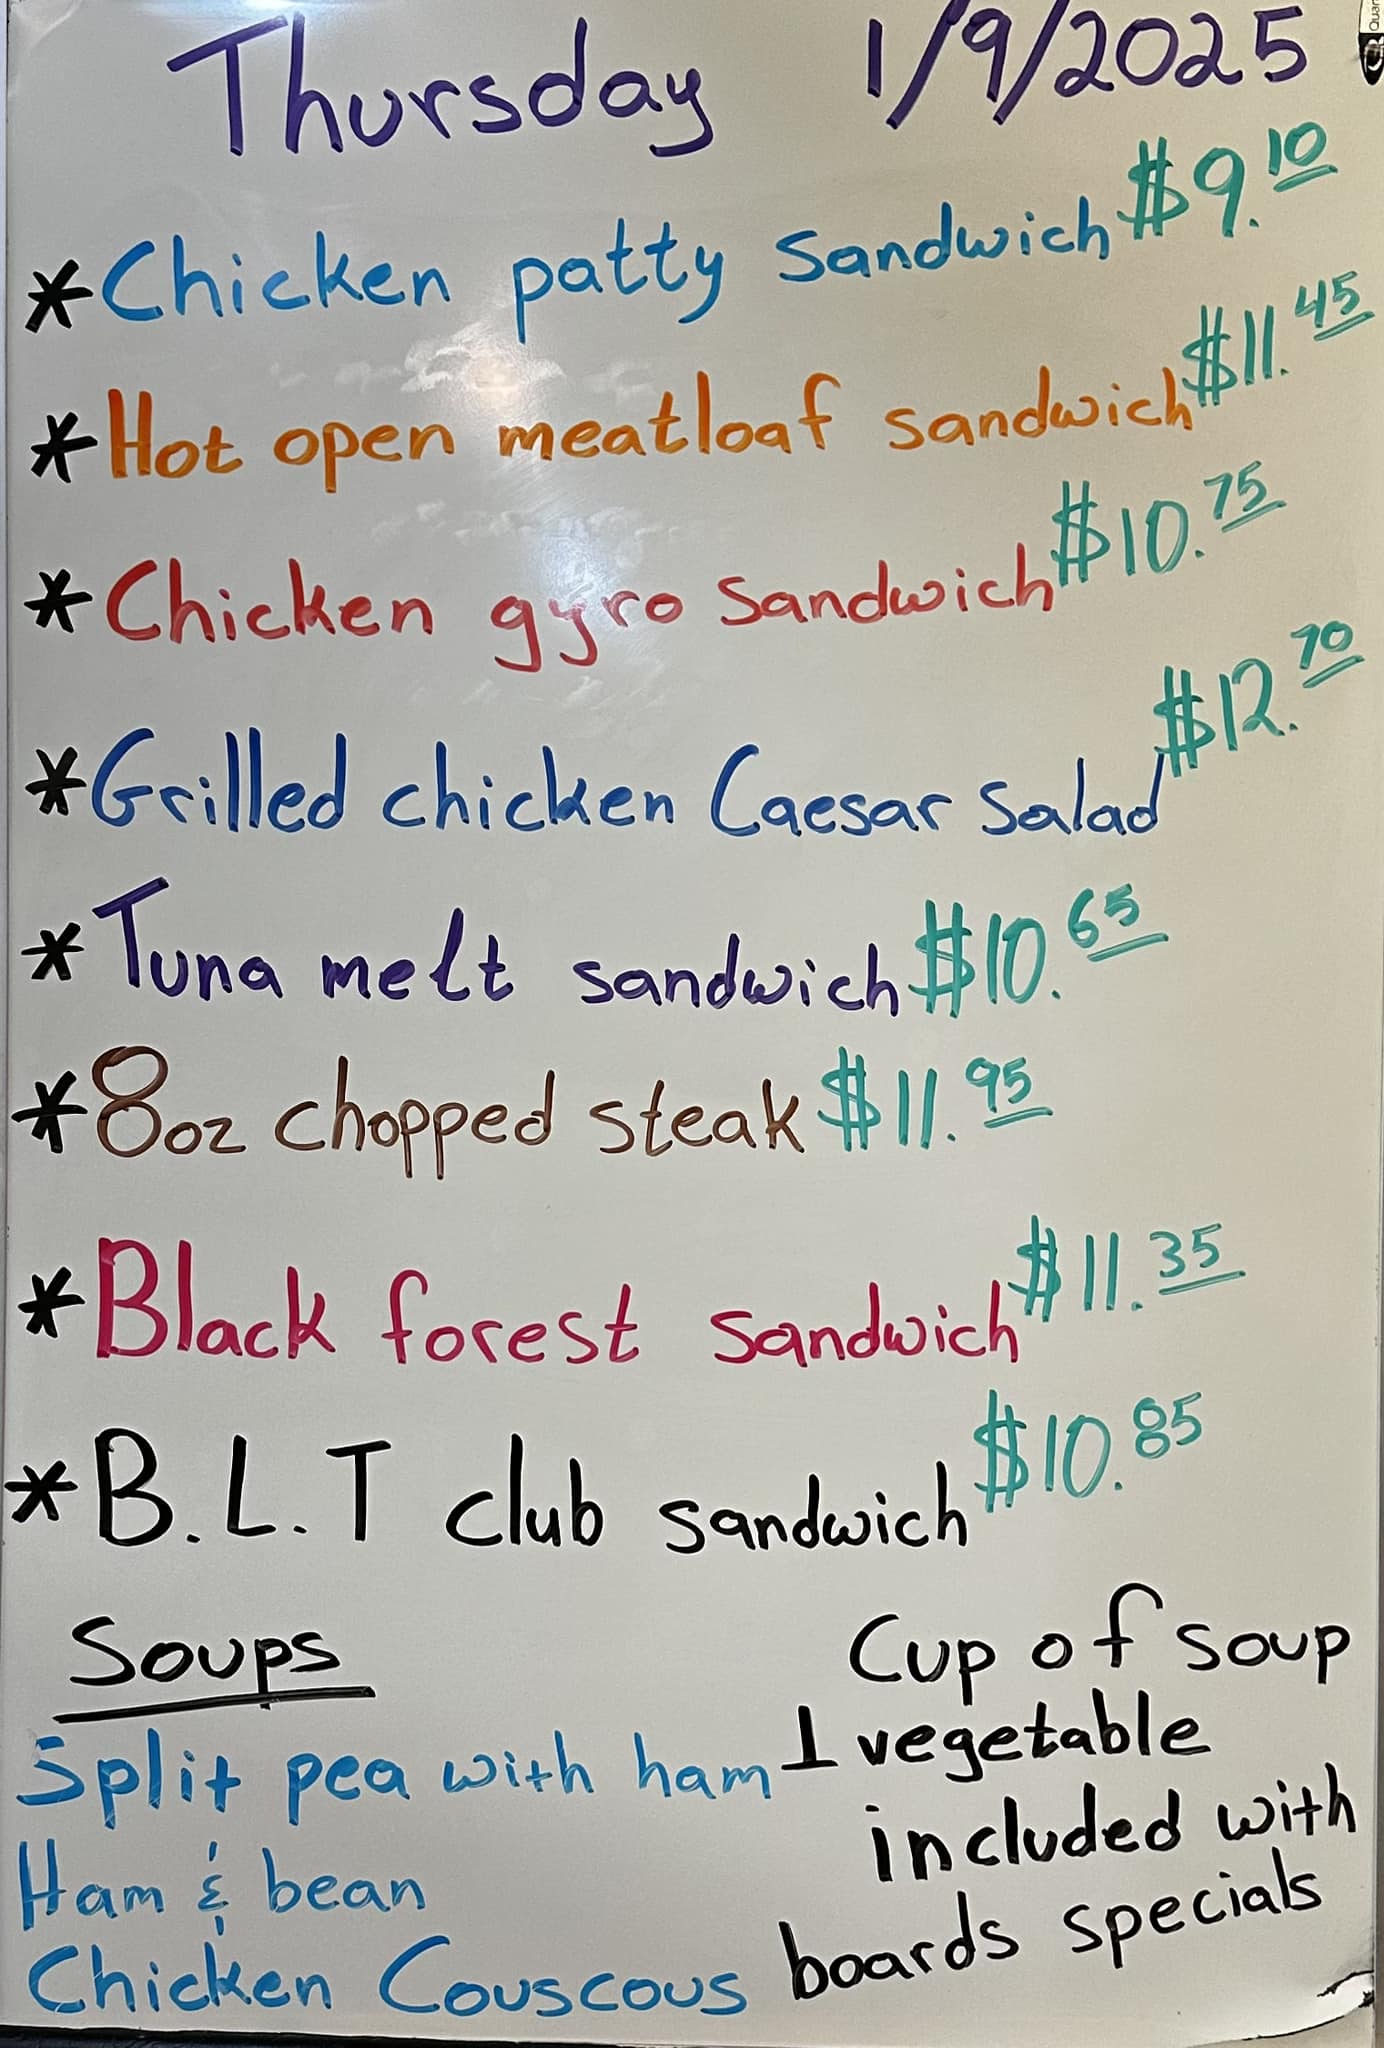 Thursday 1/9/2025
*Chicken patty sandwich $9.10
*Hot open meatloaf sandwich $11.45
*Chicken gyro sandwich $10.75
*Grilled chicken Caesar Salad $12.70
*Tuna melt sandwich $10.65
*8oz chopped steak $11.95
*Black forest sandwich $11.35
*B.L.T club sandwich $10.85
Soups
Split pea with ham
Ham & bean
Chicken Couscous
Cup of soup
1 vegetable
included with
boards specials